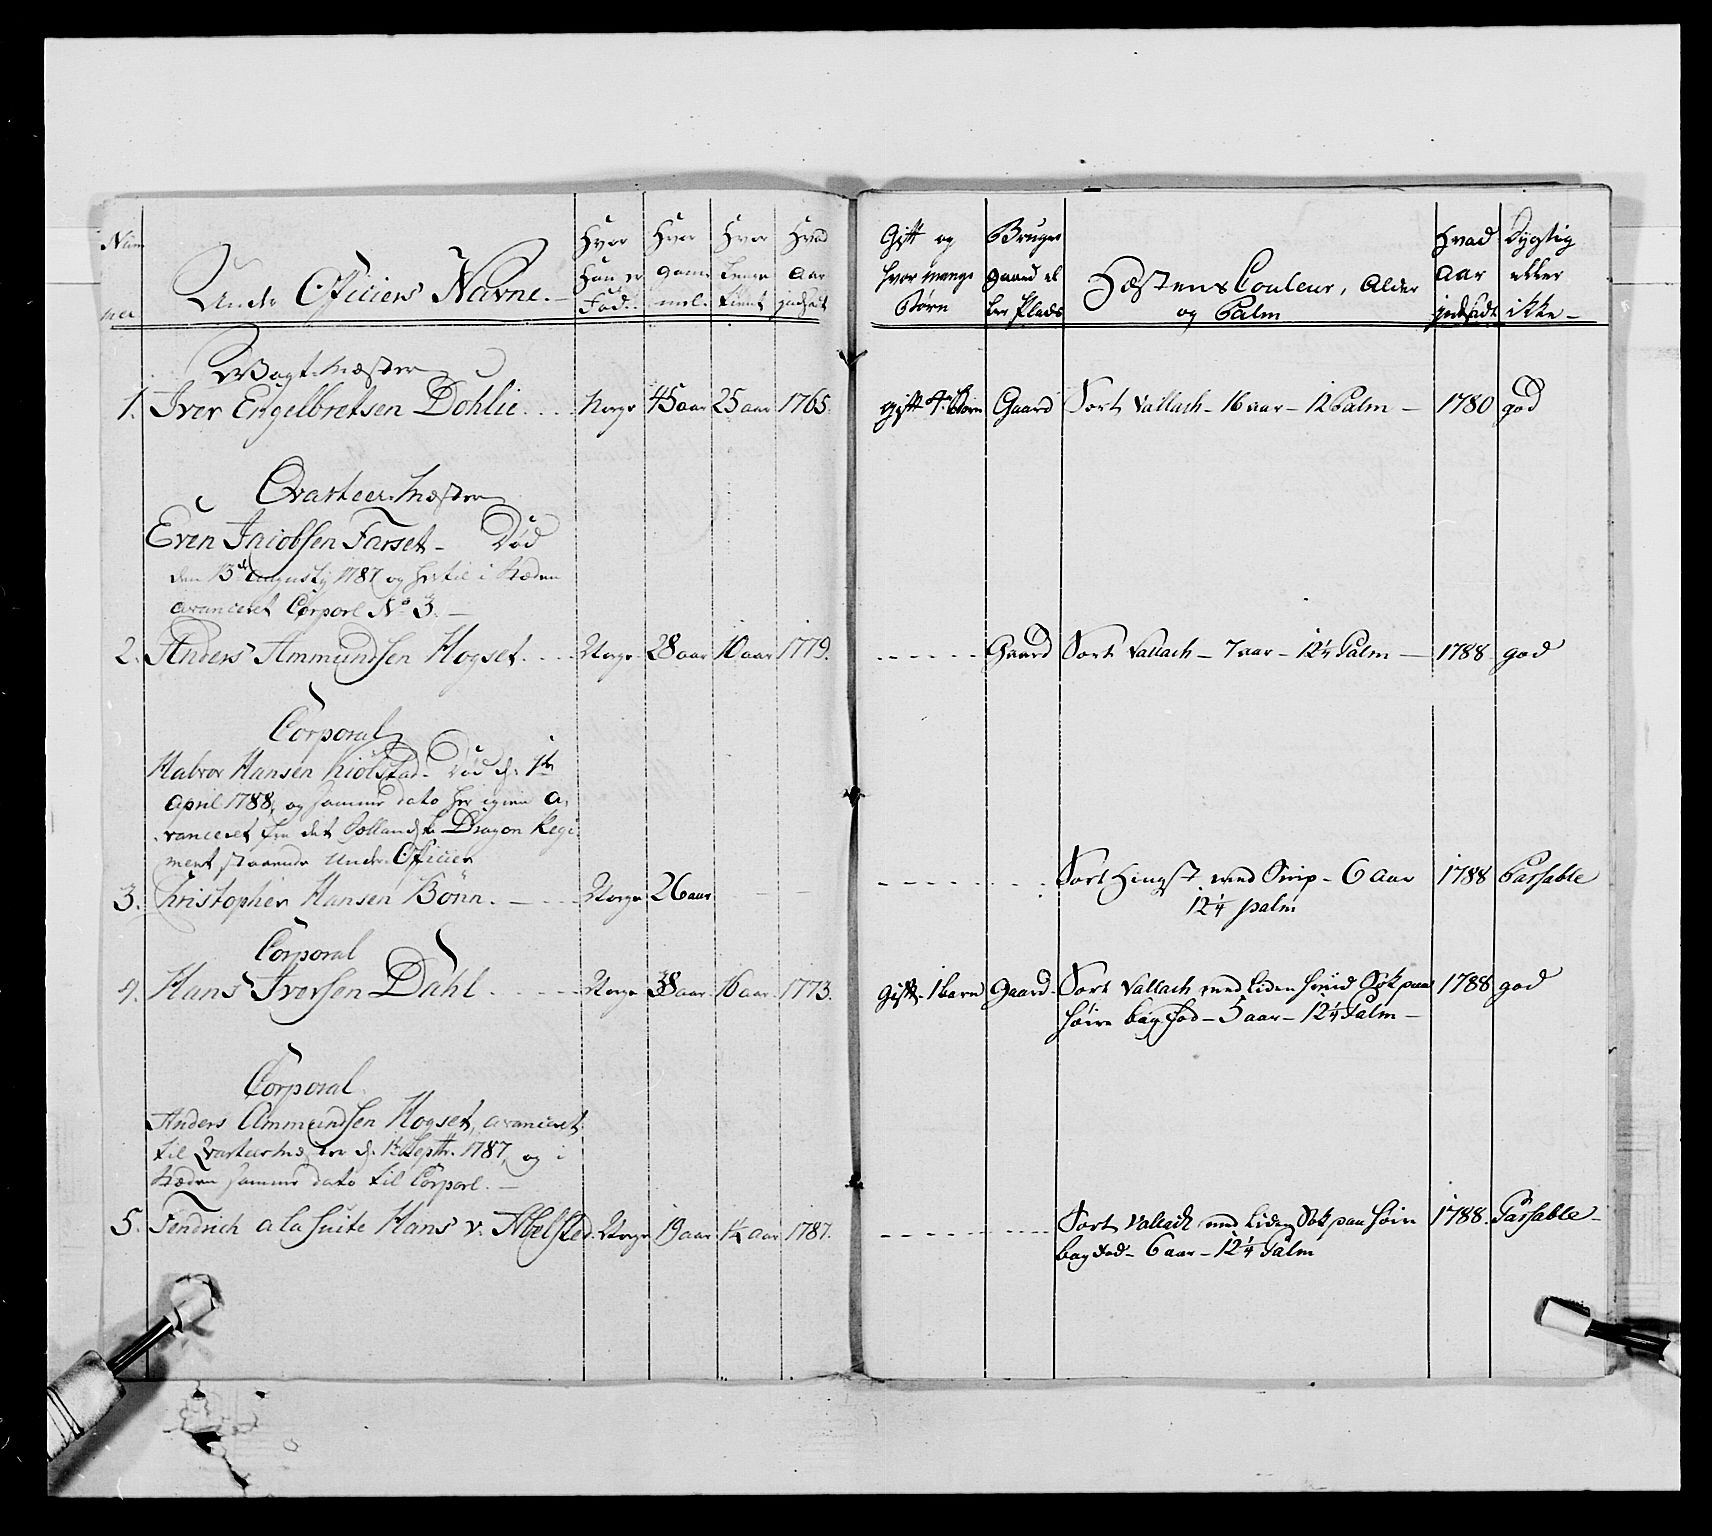 Num
mer
Under Officiers Navne.
Hvor
Han er
Fød.
Hvor
gam
mel.
Hvor
lenge
tient
Hvad
Aar
indsadt
Gift og
hvor mange
Børn
Bruger
gaard el
ler Plads
Hæstens Couleur, Alder
og Palm
Hvad
Aar
indsadt
Dygtig
eller
ikke
Vagtmæster
1. Iver Engelbretsen Dohlie. Norge 45 aar 25 aar 1765. gift 4. Børn Gaard Sort Vallach - 16 aar - 12 Palm - 1780 god
Qvarteermæster
Even Jacobsen Farset - Død
den 13de Augusty 1787 og hertil i Kæden
avanceret Corporl No 3. -
2. Anders Ammundsen Hogset. Norge 28 aar 10 aar 1779. Gaard Sort Vallach - 7 aar - 12¼ Palm - 1788 god
Corporal
Halvor Hansen Kiølstad. Død d. 1te
April 1788, og samme dato her igien a-
vanceret fra det Sollandske Dragon Regi-
ment staaende Under Officier
3. Christopher Hansen Bönn. Norge 26 aar Sort Hingst med Snip - 6 Aar 1788 Passable
12¼ palm
Corporal
4. Hans Iversen Dahl Norge 38 aar 16 aar 1773. gift - 1 barn Gaard. Sort Vallach med liden hvid Sok paa 1788 god
høire bag fod - 5 aar - 12¼ Palm -
Corporal
Anders Ammundsen Hogset, avanceret
til Qvarteermæster d. 1te Septbr. 1787, og i
Kæden samme dato til Corporl. -
5. Fendrich a la Suite Hans v. Abelsted. Norge 19 aar 1½ aar 1787. Sort Vallach med liden Sok paa høire 1788. Passable -
bag fod - 6 aar - 12¼ Palm